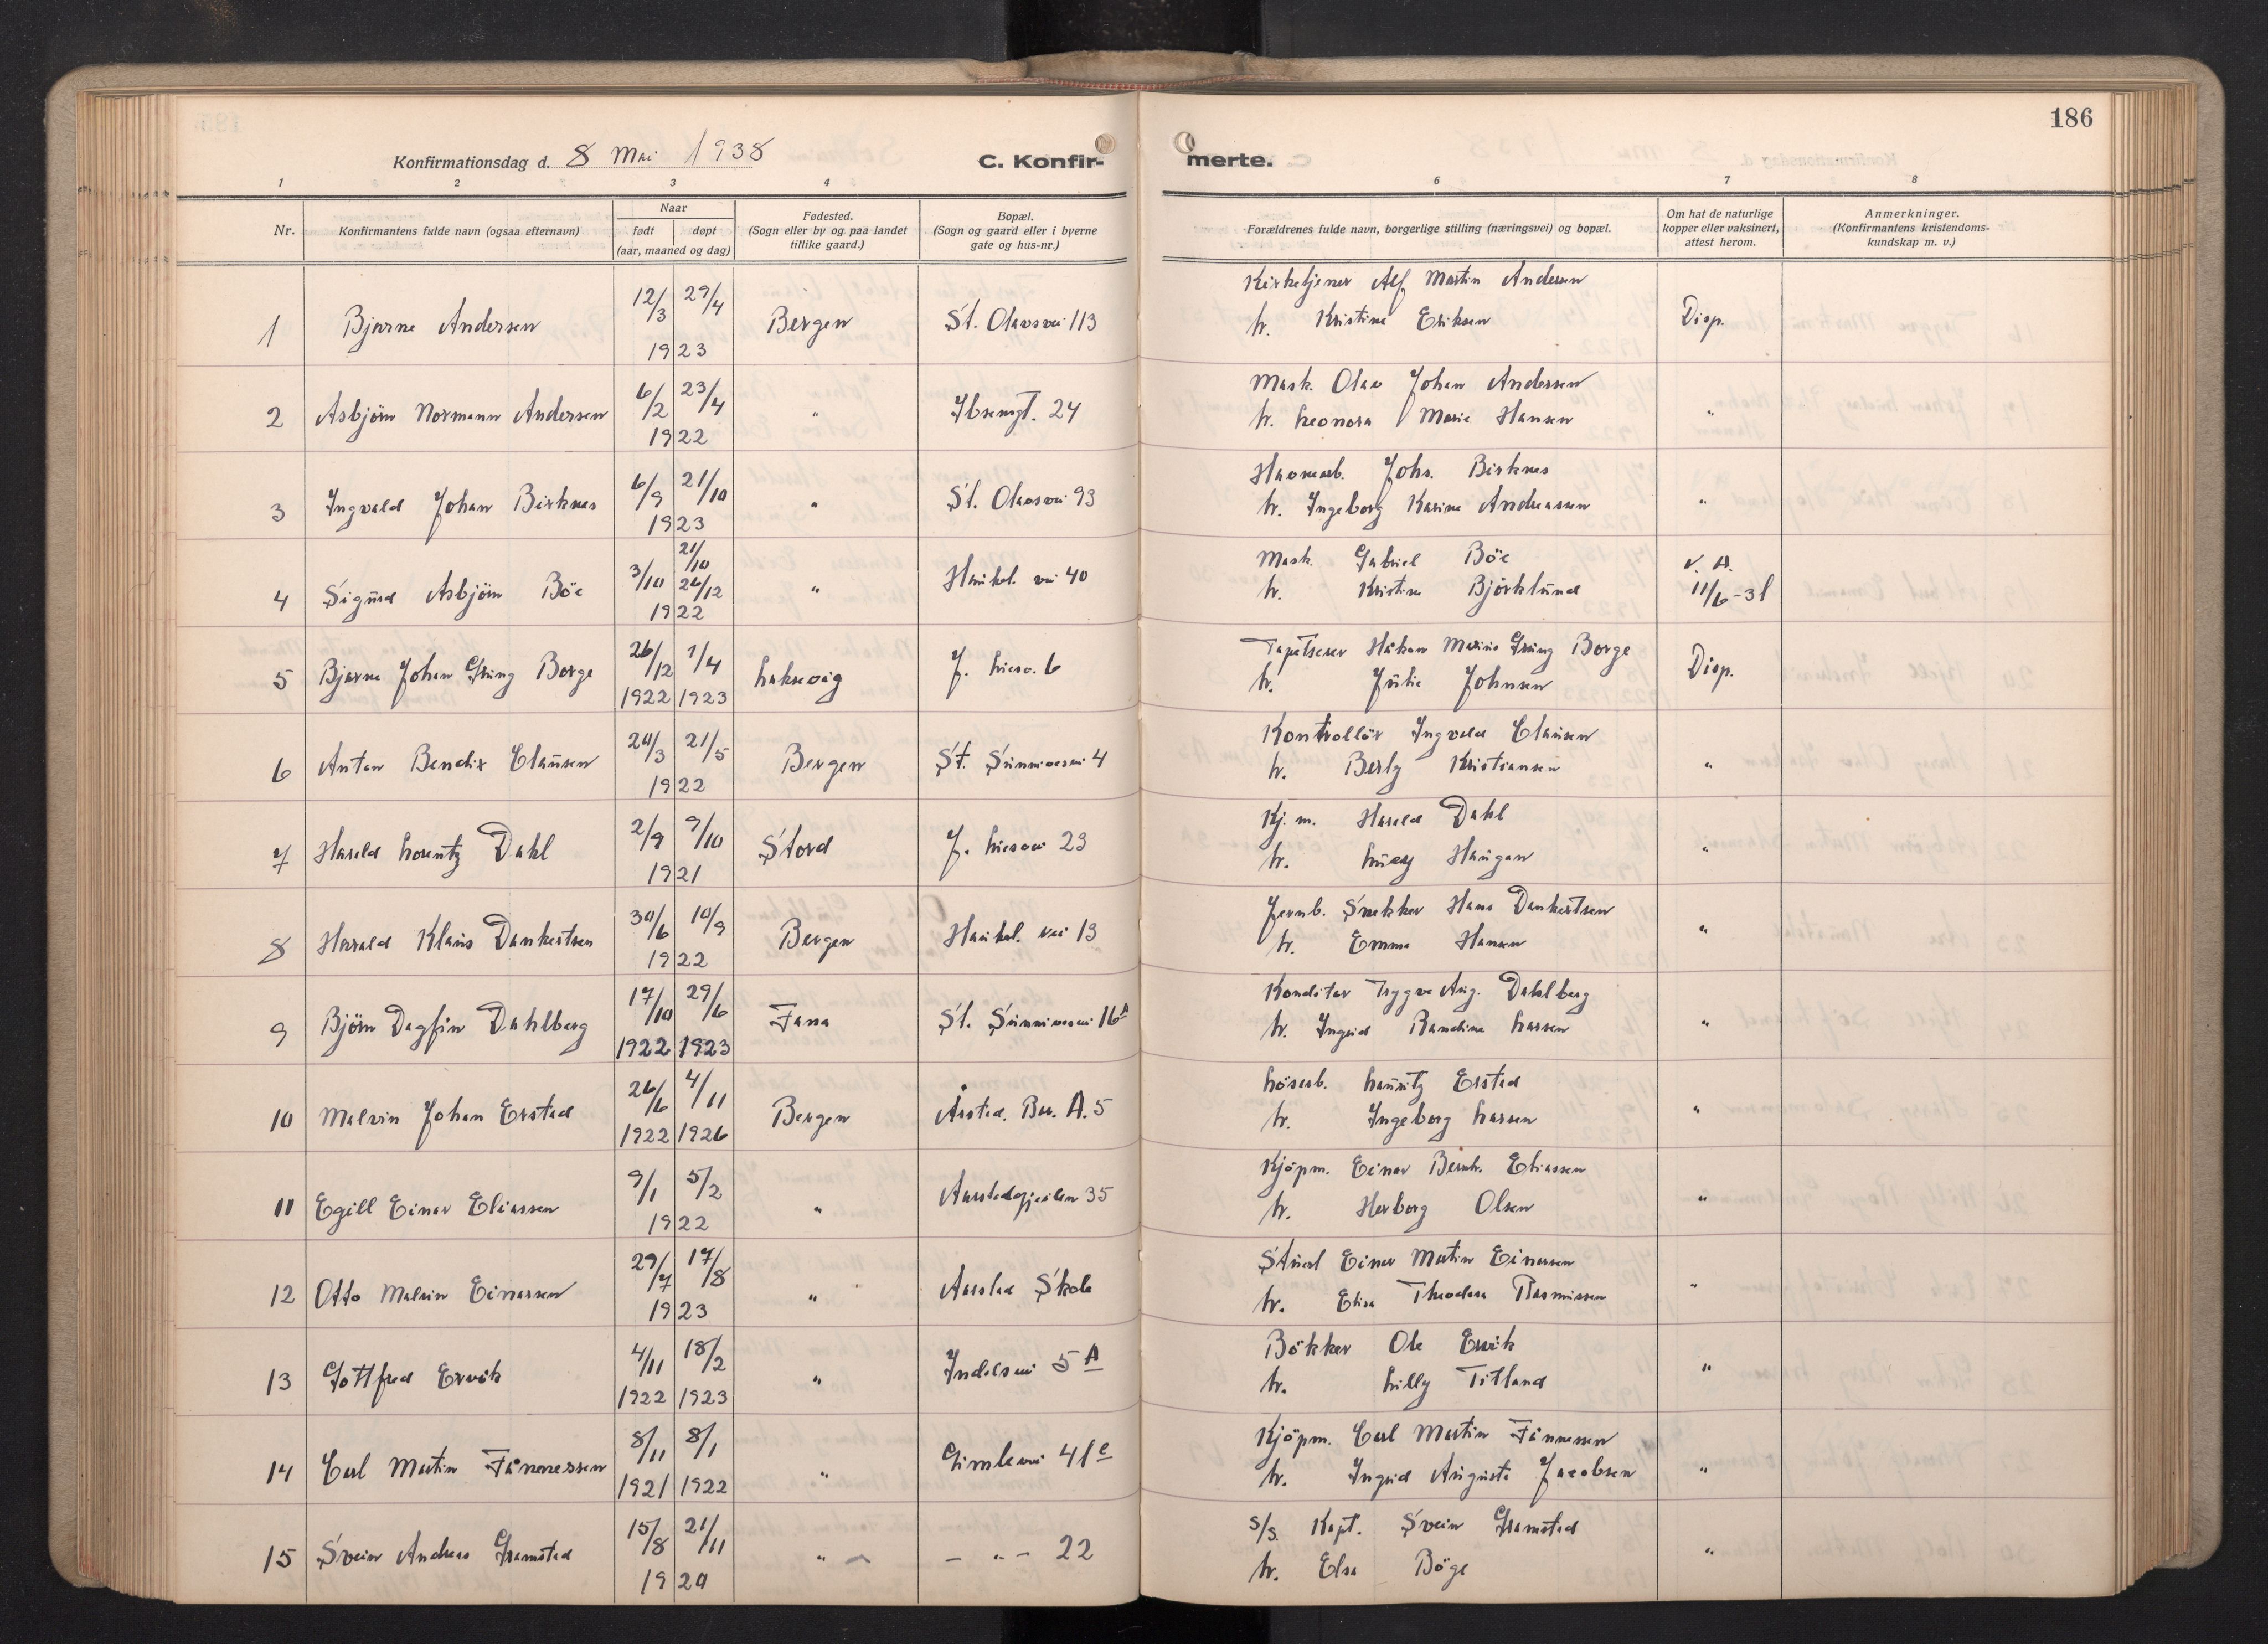 186
Konfirmationsdag d. 8 Mai 1938
C. Konfir-
merte.
1 2 3 4 5 6 7 8
Nr.
Konfirmantens fulde navn (ogsaa efternavn)
Naar
født døpt
(aar, maaned og dag)
Fødested.
(Sogn eller by og paa landet
tillike gaard.)
Bopæl.
(Sogn og gaard eller i byerne
gate og hus-nr.)
Forældrenes fulde navn, borgerlige stilling (næringsvei) og bopæl.
Om hat de naturlige
kopper eller vaksinert,
attest herom.
Anmerkninger.
(Konfirmantens kristendoms-
kundskap m. v.)
Kirketjener Alf Martin Andersen
1 Bjarne Andersen 12/3 29/4 Bergen St. Olavsvei 113 h. Kristine Eriksen Disp.
1923
6/2 23/4 Mask. Olav Johan Andersen
2 Asbjörn Normann Andersen " Ibsensgt. 24 h. Leonora Marie Hansen "
1922
6/9 21/10 Havnearb. Johs. Birknes
3 Ingvald Johan Birknes " St. Olavsvei 93 h. Ingeborg Karine Andreassen "
1923
21/10
3/10 26/12 Mask. Gabriel Böe v. A.
4 Sigurd Asbjörn Böe " Haukel. vei 40 h. Kristine Björklund 11/6-31
1922
26/12 1/4 Tapetserer Håkon Marius Gring Borge
5 Bjarne Johan Gring Borge Laksevåg J. Liesv. 6 h. Julie Johnsen Disp.
1922 1923
20/3 21/5 Kontrollör Ingvald Clausen
6 Anton Bendix Clausen Bergen St. Sunnivasvei 4 h. Berly Kristiansen "
1922
2/9 9/10 Kj. m. Harald Dahl
7 Harald Lorentz Dahl Stord J. Liesvei 23 h. Lucy Haugan "
1921
30/6 10/9 Jernb. Snekker Hans Dankertsen
8 Harald Klaus Dankertsen Bergen Haukel. vei 13 h. Emma Hansen "
1922
17/10 29/6 Konditor Trygve Aug. Dahlberg
9 Björn Dagfin Dahlberg Fana St. Sunnivasvei 16A h. Ingrid Randine Larsen "
1922 1923
26/6 4/11 Lösarb. Lauritz Erstad
10 Malvin Johan Erstad Bergen Årstad. Bar. A. 5 h. Ingeborg Larsen "
1922 1926
9/1 5/2 Kjöpm. Einar Bernh. Eliassen
11 Egill Einar Eliassen " Aarstadgjeilen 35 h. Herborg Olsen "
1922
29/7 17/8 Stuert Einar Martin Einarsen
12 Otto Malvin Einarsen " Aarstad Skole h. Elisa Theodora Rasmussen "
1923
4/11 18/2 Bökker Ole Ervik
13 Gottfred Ervik " Indalsvei 5 A h. Lilly Titland "
1922 1923
8/11 8/1 Kjöpm. Carl Martin Fännessen
14 Carl Martin Fännessen " Gimlevei 41c h. Ingrid Augusta Jacobsen "
1921 1922
15/8 21/11 s/s. Kapt. Svein Gramstad
15 Svein Andreas Gramstad " - " - 22 h. Elsa Böge "
1920